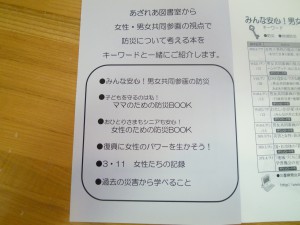 あざれあ図書室から
女性・男女共同参画の視点で
防災について考える本を
キーワードと一緒にご紹介します。
●みんな安心!男女共同参画の防災
●子どもを守るのは私!
ママのための防災BOOK
●おひとりさまもシニアも安心!
女性のための防災BOOK
●復興に女性のパワーを生かそう!
●3・11 女性たちの記録
●過去の災害から学べること
みんな安心!男
キーワード